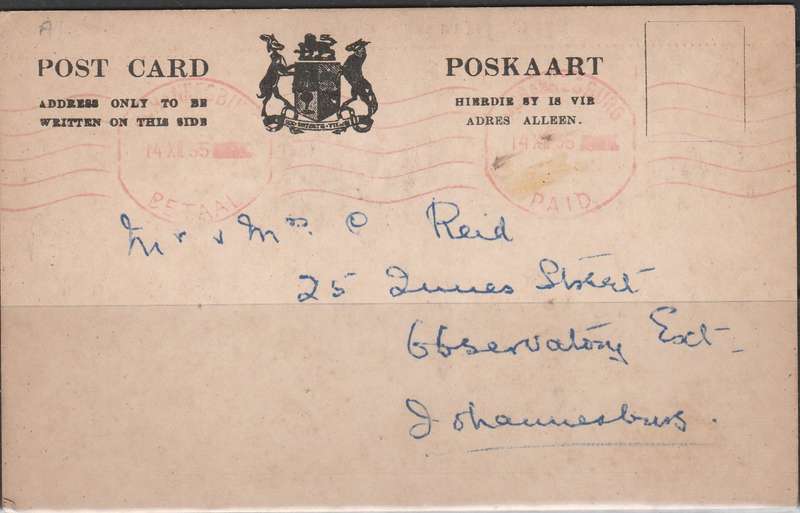 A
POST CARD
POSKAART
ADDRESS ONLY TO BE
WRITTEN ON THIS SIDE
HIERDIE SY IS VIR
ADRES ALLEEN.
14 XII 55
BETAAL
14 XII 55
PAID
Mr & Mrs. C Reid
25 Innes Street
Observatory Ext
Johannesburg.